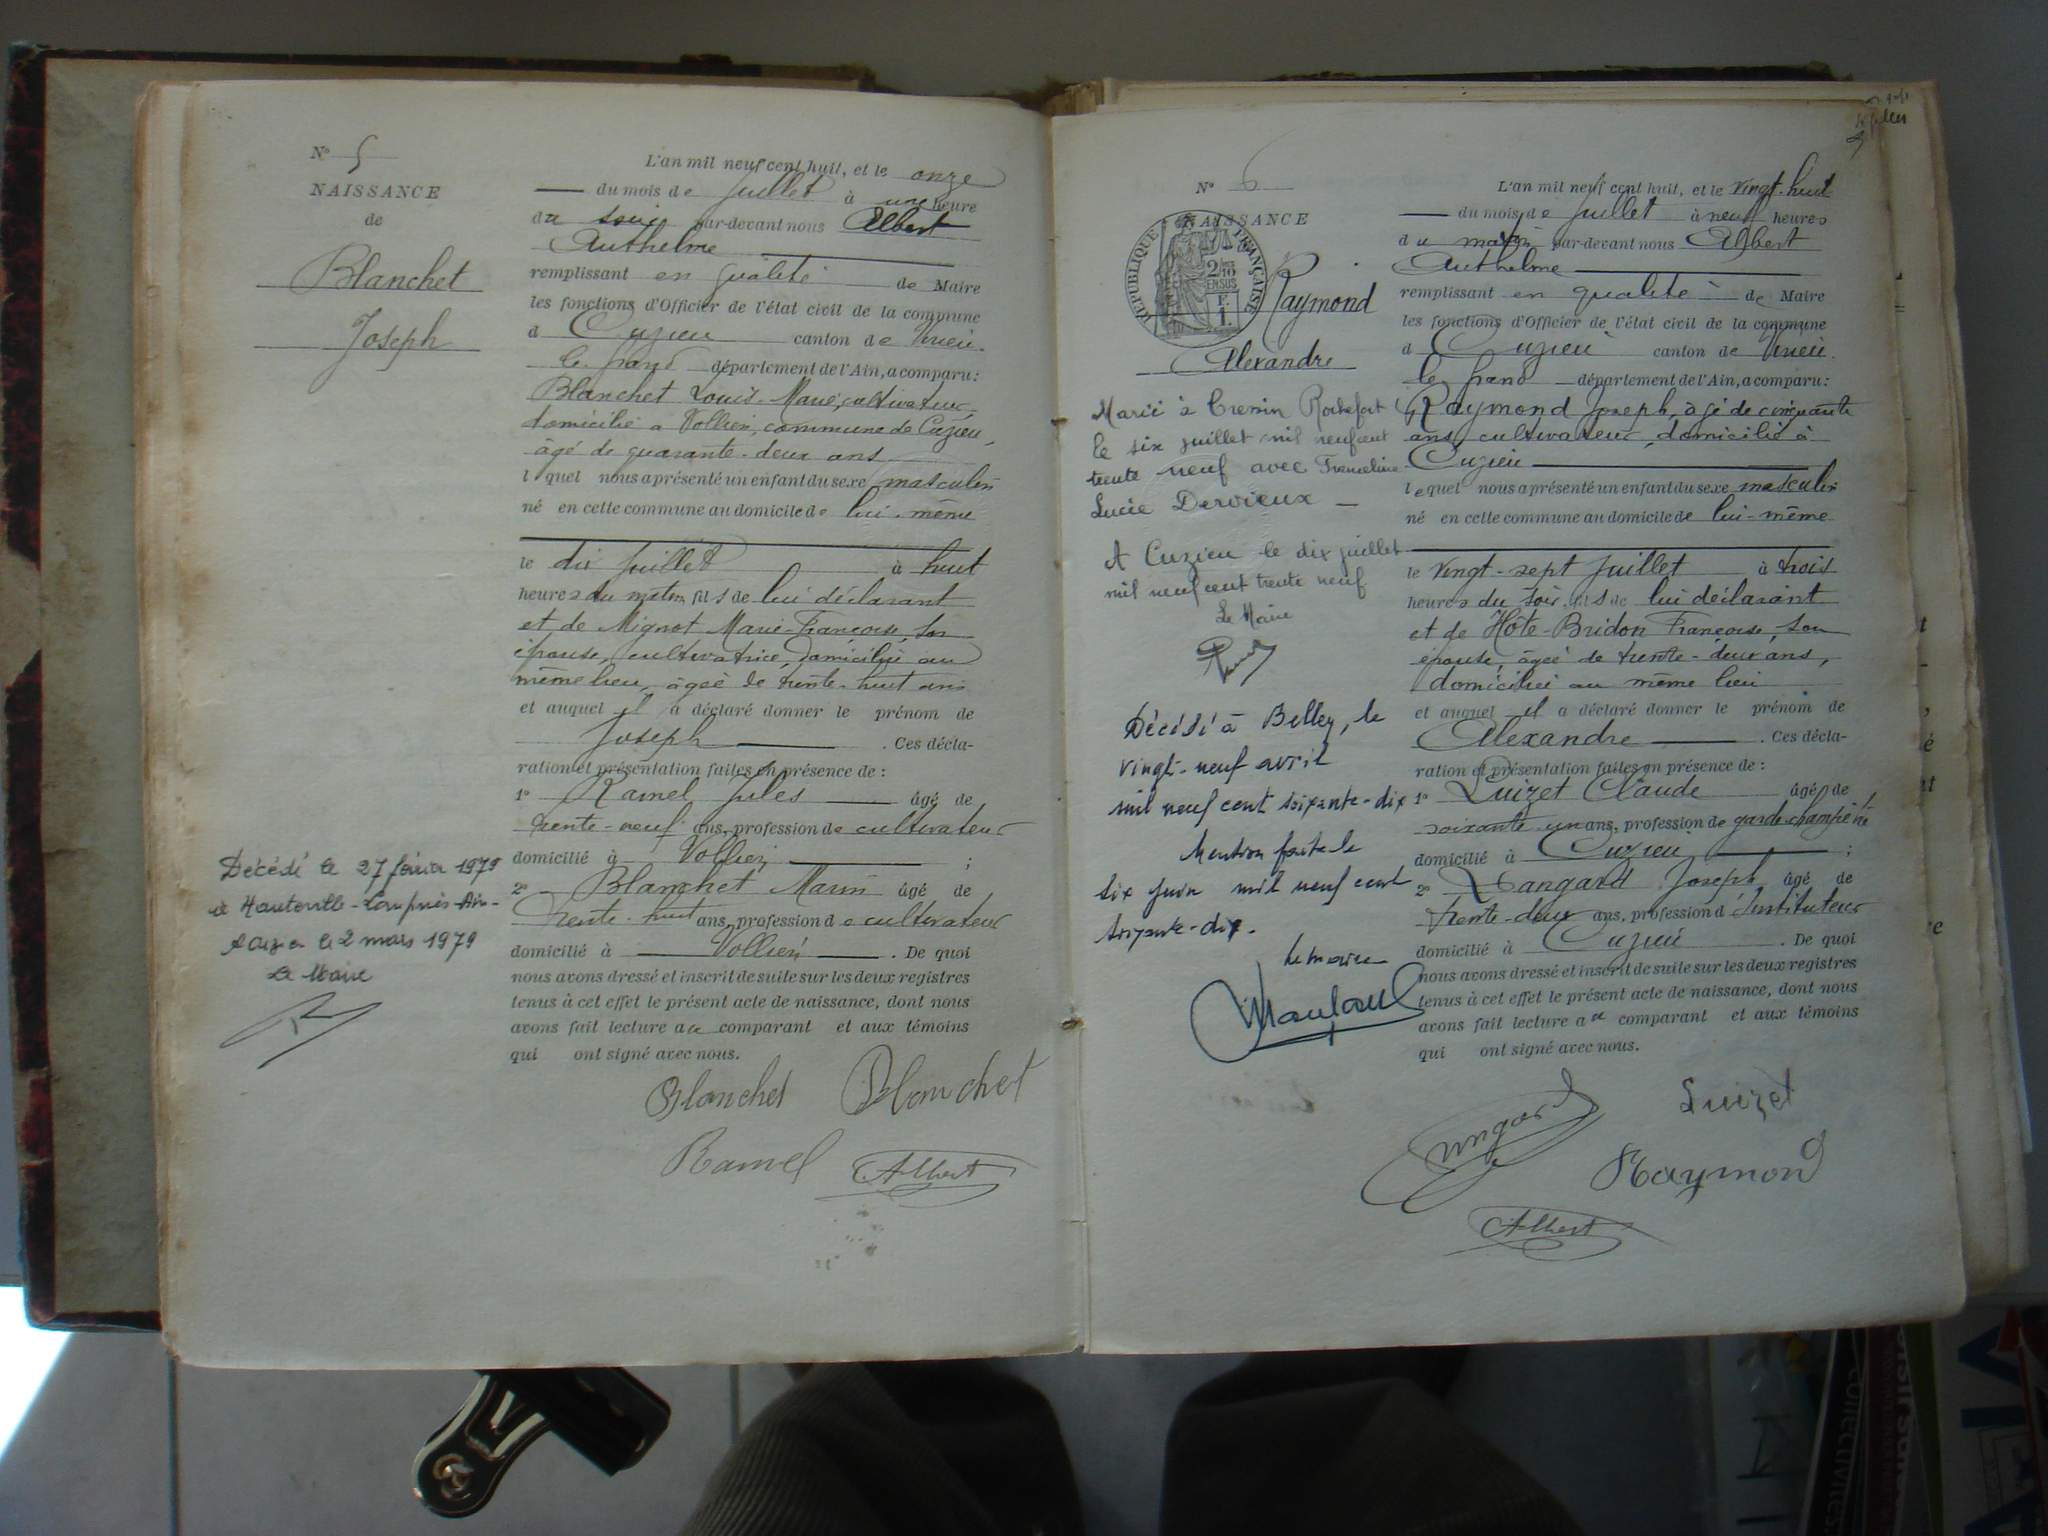 N° 5
NAISSANCE
de
Blanchet
Joseph
L'an mil neuf cent huit, et le onze
du mois de juillet à une heure
du soir par-devant nous Albert
Anthelme
remplissant en qualité de Maire
les fonctions d'Officier de l'état civil de la commune
d Cuzieu canton de Virieu-
le-grand département de l'Ain, a comparu :
Blanchet Louis-Marie, cultivateur,
domicilié à Vollien, commune de Cuzieu,
âgé de quarante-deux ans
lequel nous a présenté un enfant du sexe masculin
né en cette commune au domicile de lui-même
le dix juillet à huit
heures du matin fils de lui déclarant
et de Mignot Marie-Françoise, son
épouse, cultivatrice, domiciliée au
même lieu, âgée de trente-huit ans
et auquel il a déclaré donner le prénom de
Joseph . Ces décla-
ration et présentation faites en présence de :
1° Ramel Jules âgé de
trente-neuf ans, profession de cultivateur
domicilié à Vollien ;
2° Blanchet Marin âgé de
trente-huit ans, profession de cultivateur
domicilié à Vollien . De quoi
nous avons dressé et inscrit de suite sur les deux registres
tenus à cet effet le présent acte de naissance, dont nous
avons fait lecture au comparant et aux témoins
qui ont signé avec nous.
Blanchet Blanchet
Ramel Albert
Décédé le 27 février 1979
à Hauteville-Lompnes-Ain-
A Cuzieu le 2 mars 1979
Le Maire
N° 6
NAISSANCE
RÉPUBLIQUE FRANÇAISE
2/10 EN SUS
F. 1.
Raymond
Alexandre
Marié à Cressin Rochefort
le six juillet mil neuf cent
trente neuf avec Franceline
Lucie Dervieux
A Cuzieu le dix juillet
mil neuf cent trente neuf
Le Maire
Décédé à Belley, le
vingt-neuf avril
mil neuf cent soixante-dix
Mention faite le
six juin mil neuf cent
soixante-dix.
Le maire
L'an mil neuf cent huit, et le vingt-huit
du mois de juillet à neuf heures
du matin par-devant nous Albert
Anthelme
remplissant en qualité de Maire
les fonctions d'Officier de l'état civil de la commune
d Cuzieu canton de Virieu-
le grand département de l'Ain, a comparu :
Raymond Joseph, âgé de cinquante
ans, cultivateur, domicilié à
Cuzieu
lequel nous a présenté un enfant du sexe masculin
né en cette commune au domicile de lui-même
le vingt-sept juillet à trois
heures du soir fils de lui déclarant
et de Hôte-Bridon Françoise, son
épouse, âgée de trente-deux ans,
domiciliée au même lieu
et auquel il a déclaré donner le prénom de
Alexandre . Ces décla-
ration et présentation faites en présence de :
1° Luizet Claude âgé de
soixante-un ans, profession de garde-champêtre
domicilié à Cuzieu ;
2° Joseph âgé de
trente-deux ans, profession d'instituteur
domicilié à Cuzieu . De quoi
nous avons dressé et inscrit de suite sur les deux registres
tenus à cet effet le présent acte de naissance, dont nous
avons fait lecture au comparant et aux témoins
qui ont signé avec nous.
Luizet
Raymond
Albert